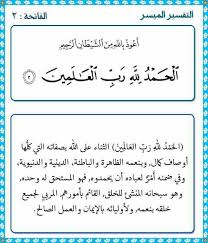 التفسير الميسر
الفاتحة : ٢
أَعُوذُ بِاللَّهِ مِنَ الشَّيْطَانِ الرَّجِيمِ
الْحَمْدُ لِلَّهِ رَبِّ الْعَالَمِينَ ٢
(الحَمْدُ للهِ رَبِّ العَالَمِينَ) الثناء على الله بصفاته التي كلُّها
أوصاف كمال، وبنعمه الظاهرة والباطنة، الدينية والدنيوية،
وفي ضمنه أمْرٌ لعباده أن يحمدوه، فهو المستحق له وحده،
وهو سبحانه المنشئ للخلق، القائم بأمورهم، المربي لجميع
خلقه بنعمه، ولأوليائه بالإيمان والعمل الصالح.